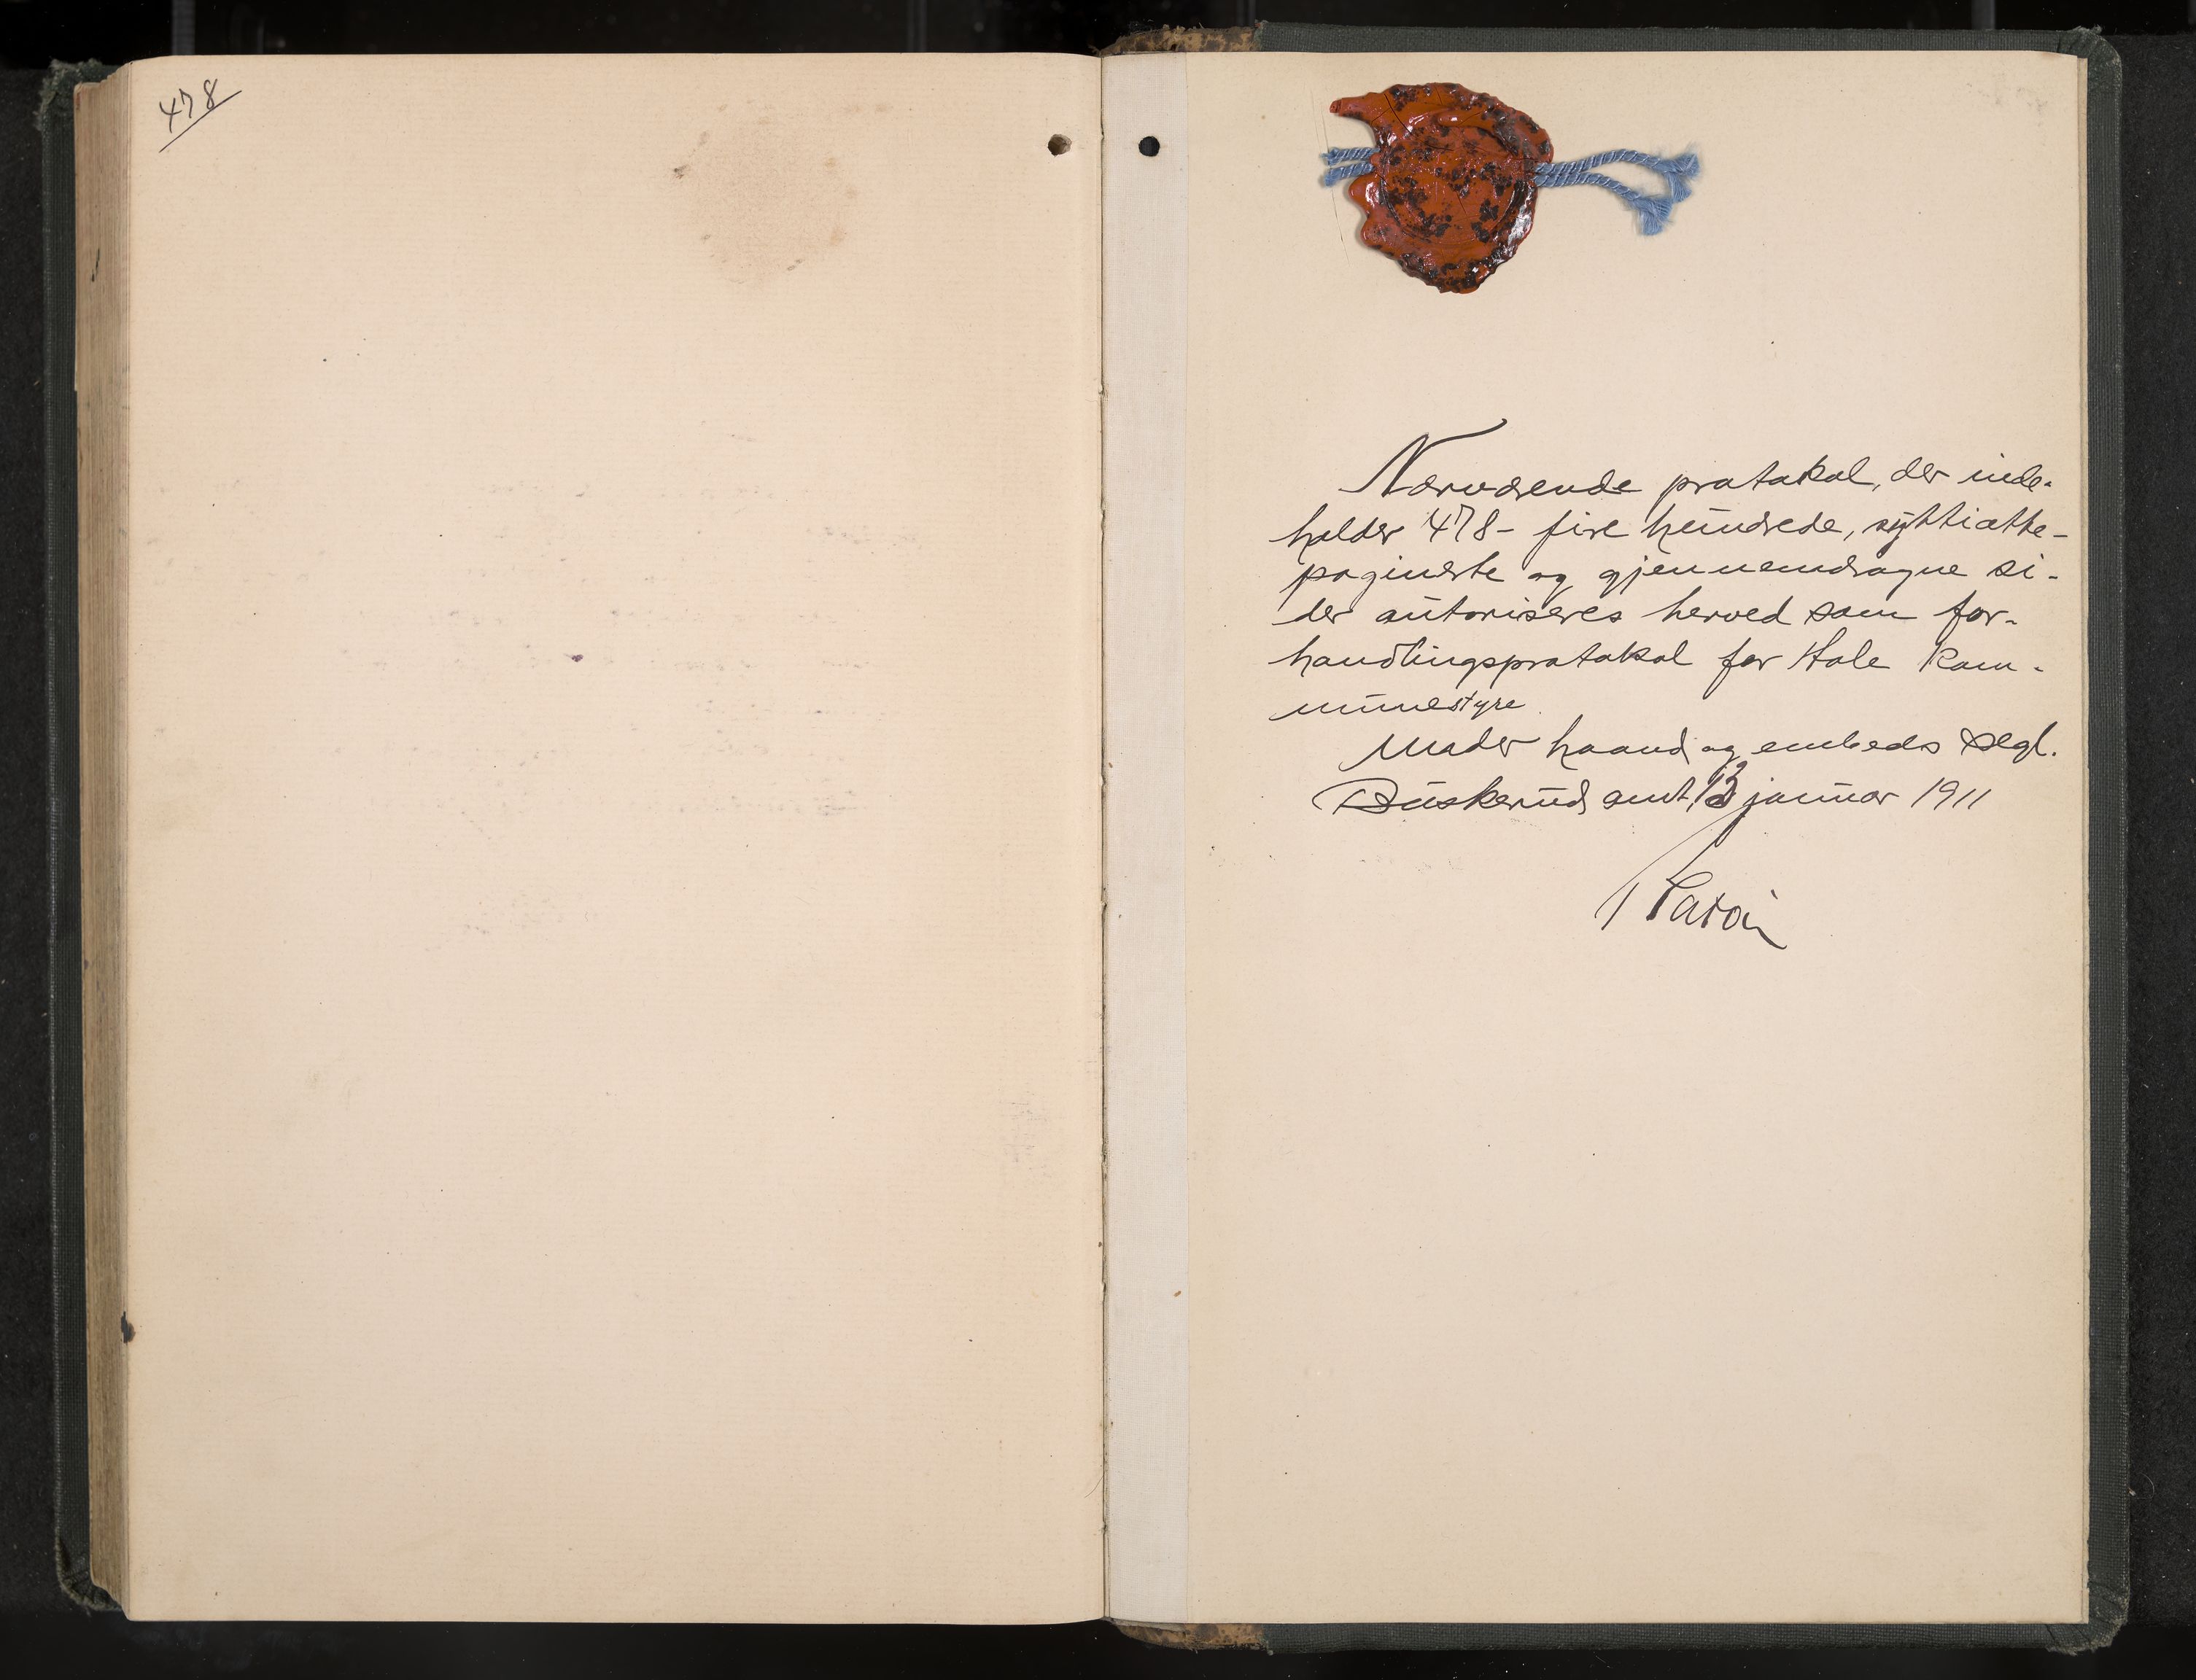 478
Nærværende protokol, der inde-
holder 478 - fire hundrede, syttiotte -
paginerte og gjennemdragne si-
der autoriseres herved som for-
handlingsprotokol for Hole kom-
munestyre.
Under haand og embeds segl.
Buskerud amt, 13 januar 1911